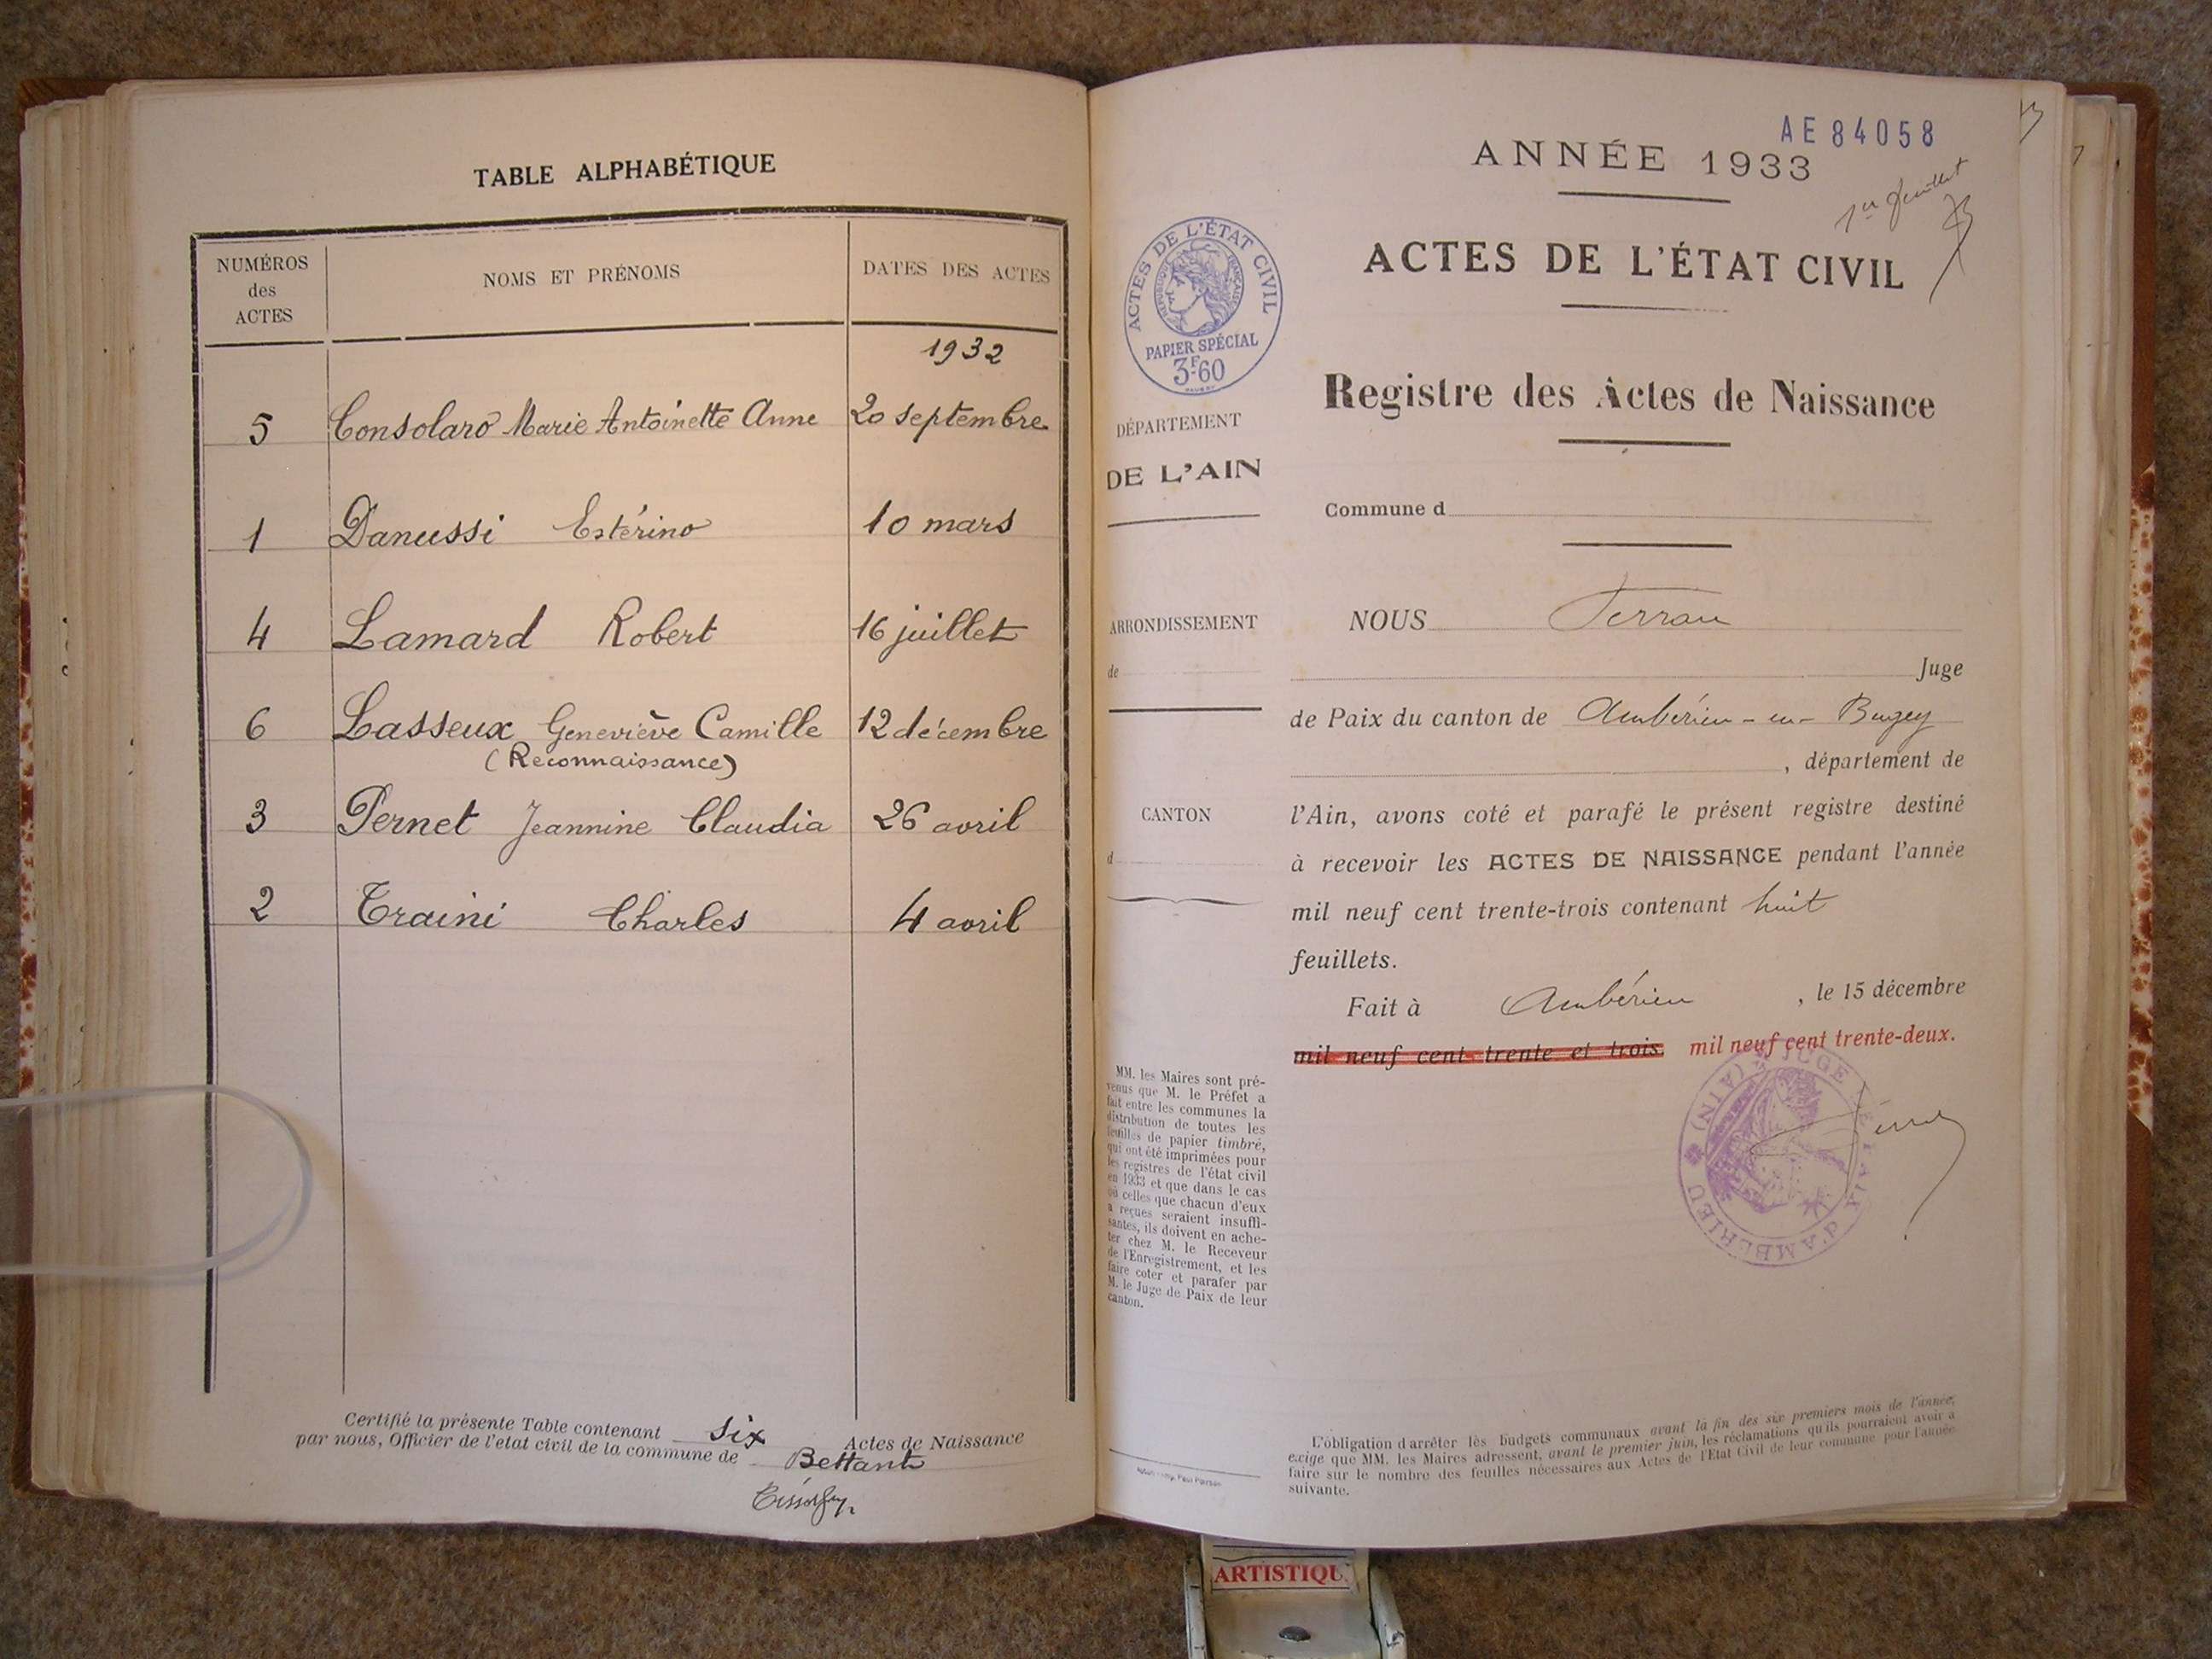 TABLE ALPHABÉTIQUE
NUMÉROS
des
ACTES
NOMS ET PRÉNOMS
DATES DES ACTES
1932
5 Consolaro Marie Antoinette Anne 20 septembre
1 Danussi Estérino 10 mars
4 Lamard Robert 16 juillet
6 Lasseux Geneviève Camille 12 décembre
(Reconnaissance)
3 Pernet Jeannine Claudia 26 avril
2 Traini Charles 4 avril
Certifié la présente Table contenant six Actes de Naissance
par nous, Officier de l'etat civil de la commune de Bettant
AE84058
ANNÉE 1933
1er feuillet
ACTES DE L'ÉTAT CIVIL
ACTES DE L'ÉTAT CIVIL
RÉPUBLIQUE FRANÇAISE
PAPIER SPÉCIAL
3F.60
Registre des Actes de Naissance
DÉPARTEMENT
DE L'AIN
Commune d
ARRONDISSEMENT
de
CANTON
d
NOUS
Juge
de Paix du canton de Ambérieu-en-Bugey
, département de
l'Ain, avons coté et parafé le présent registre destiné
à recevoir les ACTES DE NAISSANCE pendant l'année
mil neuf cent trente-trois contenant huit
feuillets.
Fait à Ambérieu , le 15 décembre
mil neuf cent trente et trois mil neuf cent trente-deux.
JUGE DE PAIX D'AMBÉRIEU (AIN)
MM. les Maires sont pré-
venus que M. le Préfet a
fait entre les communes la
distribution de toutes les
feuilles de papier timbré,
qui ont été imprimées pour
les registres de l'état civil
en 1933 et que dans le cas
où celles que chacun d'eux
a reçues seraient insuffi-
santes, ils doivent en ache-
ter chez M. le Receveur
de l'Enregistrement, et les
faire coter et parafer par
M. le Juge de Paix de leur
canton.
L'obligation d'arrêter les budgets communaux avant la fin des six premiers mois de l'année,
exige que MM. les Maires adressent, avant le premier juin, les réclamations qu'ils pourraient avoir à
faire sur le nombre des feuilles nécessaires aux Actes de l'Etat Civil de leur commune pour l'année
suivante.
ARTISTIQU